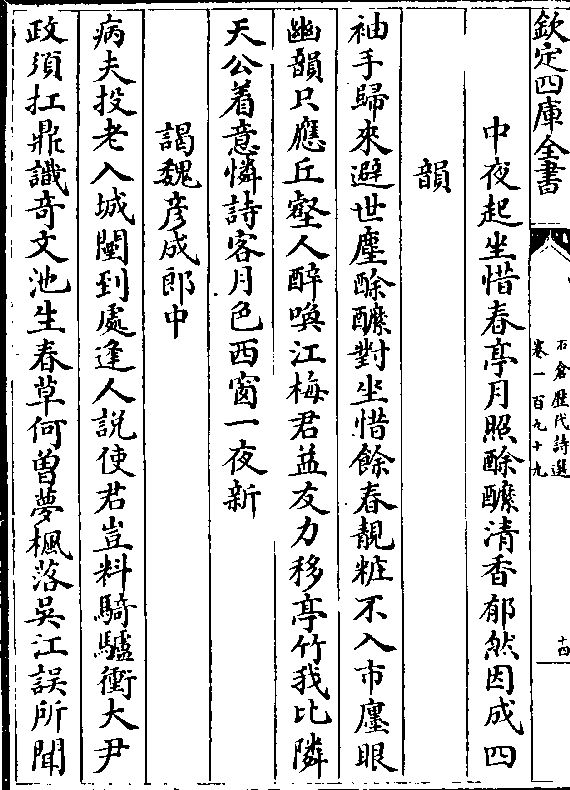 欽定四庫全書
石倉歷代詩選
卷一百九十九
十四
中夜起坐惜春亭月照酴醿清香郁然因成四
韻
袖手歸來避世塵酴醿對坐惜餘春靚粧不入市廛眼
幽韻只應丘壑人醉喚江梅君益友力移亭竹我比隣
天公着意憐詩客月色西窗一夜新
謁魏彦成郎中
病夫投老入城闉到處逢人説使君豈料騎驢衝大尹
政須扛鼎識奇文池生春草何曽夢楓落吳江誤所聞